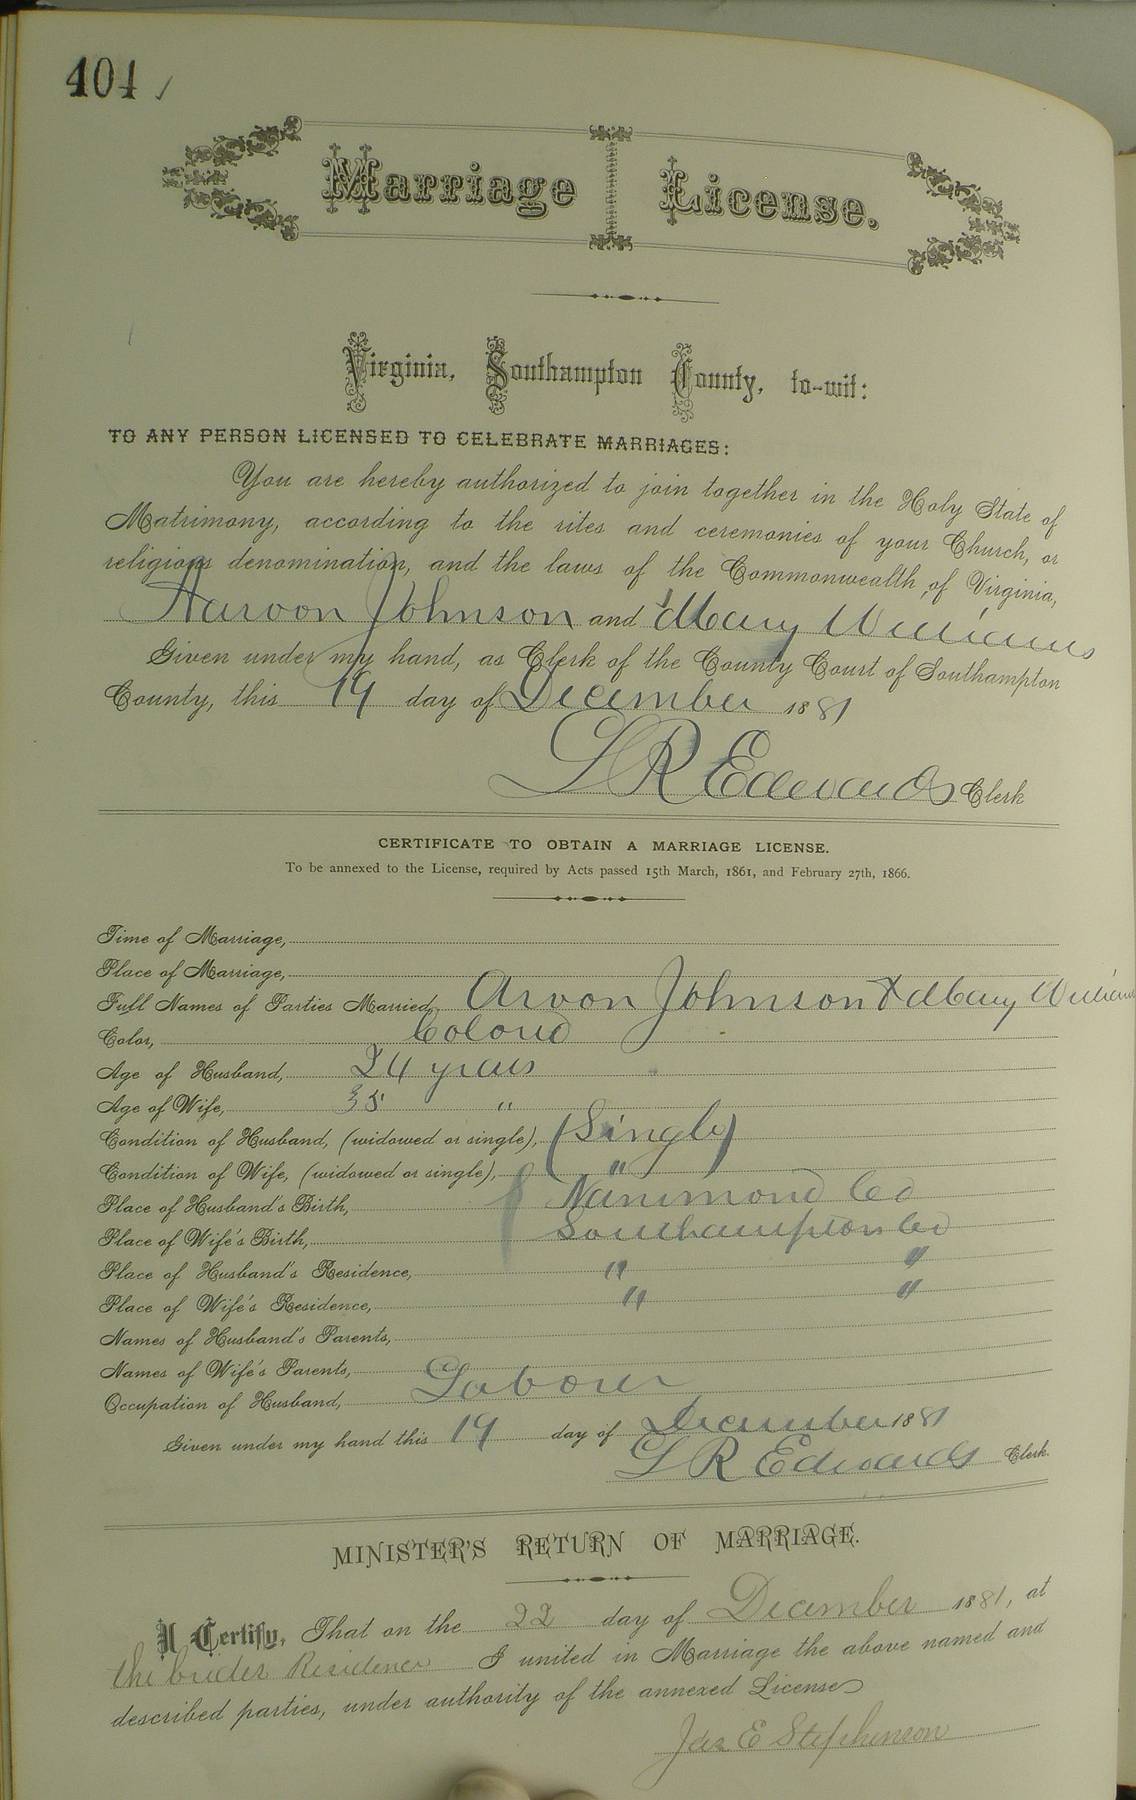 404 ✓
Marriage License.
Virginia, Southampton County, to-wit:
TO ANY PERSON LICENSED TO CELEBRATE MARRIAGES:
You are hereby authorized to join together in the Holy State of
Matrimony, according to the rites and ceremonies of your Church, or
religious denomination, and the laws of the Commonwealth of Virginia,
Aaroon Johnson and Mary Williams
Given under my hand, as Clerk of the County Court of Southampton
County, this 19 day of December 1881
L R Edwards Clerk
CERTIFICATE TO OBTAIN A MARRIAGE LICENSE.
To be annexed to the License, required by Acts passed 15th March, 1861, and February 27th, 1866.
Time of Marriage,
Place of Marriage,
Full Names of Parties Married, Aroon Johnson & Mary Williams
Color, Colord
Age of Husband, 24 years
Age of Wife, 35 "
Condition of Husband, (widowed or single), (Single)
Condition of Wife, (widowed or single), "
Place of Husband's Birth, Nansmond Co
Place of Wife's Birth, Southampton Co
Place of Husband's Residence, " "
Place of Wife's Residence, " "
Names of Husband's Parents,
Names of Wife's Parents,
Occupation of Husband, Laborer
Given under my hand this 19 day of December 1881
L R Edwards Clerk.
MINISTER'S RETURN OF MARRIAGE.
I Certify, That on the 22 day of December 1881, at
the brides Residence I united in Marriage the above named and
described parties, under authority of the annexed License
Jas E Stephenson